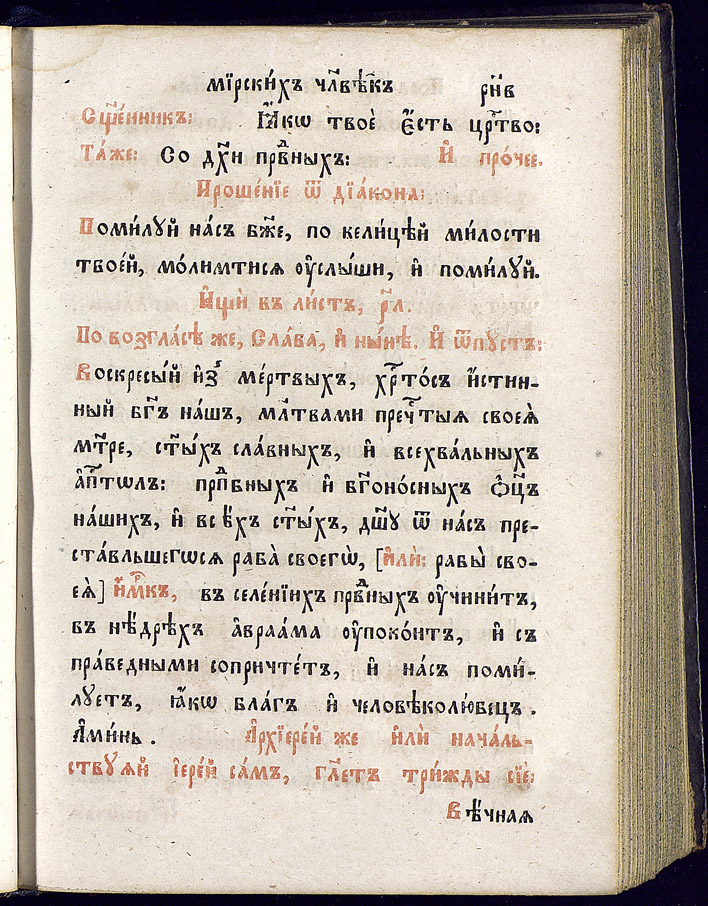 мїрски́хъ чл҃вѣ̑къ рн҃в
Сщ҃е́нникъ: Ꙗ҆́кѡ твоѐ є҆́сть црⷭ҇тво:
Та́же: Со дх҃и првⷣныхъ: И҆ про́чее.
И҆роше́нїе ѿ дїа́кона:
Поми́лꙋй на́съ бж҃е, по вели́цѣй ми́лости
твое́й, мо́лимтисѧ ᲂу҆слы́ши, и҆ поми́лꙋй.
И҆щѝ въ ли́стъ, рл҃.
По во́згласѣ же, Сла́ва, и҆ ны́нѣ. И҆ ѿпꙋстъ:
Воскресы́й и҆з̾ ме́ртвыхъ, хрⷭ҇то́съ и҆́стин-
ный бг҃ъ на́шъ, мл҃твами пречⷭ҇тыѧ своеѧ̀
мт҃ре, ст҃ы́хъ сла́вныхъ, и҆ всехва́льныхъ
а҆пⷭ҇тѡлъ: прпⷣбныхъ и҆ бг҃оно́сныхъ ѻ҆ц҃ъ
на́шихъ, и҆ всѣ́хъ ст҃ы́хъ, дш҃ꙋ ѿ на́съ пре-
ста́вльшегѡсѧ раба̀ своегѡ̀, [и҆лѝ: рабы̀ сво-
еѧ̀] и҆́мⷬ҇къ, въ селе́нїихъ првⷣныхъ ᲂу҆чини́тъ,
въ нѣ́дрѣхъ а҆враа́ма ᲂу҆поко́итъ, и҆ съ
пра́ведными сопричте́тъ, и҆ на́съ поми́-
лꙋетъ, ꙗ҆́кѡ бла́гъ и҆ человѣколю́бецъ.
А҆ми́нь. А҆рхїере́й же и҆лѝ нача́ль-
ствꙋѧй і҆ере́й са́мъ, гл҃етъ три́жды сїѐ:
Вѣ́чнаѧ